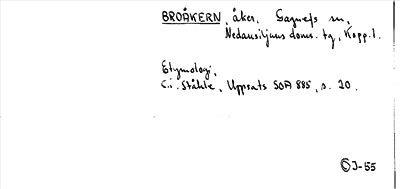 BROÅKERN, åker. Gagnefs sn,
Nedansiljans doms. tg, Kopp. l.
Etymologi.
C.i. Ståhle, Uppsats SOA 885, s. 20.
S J-55